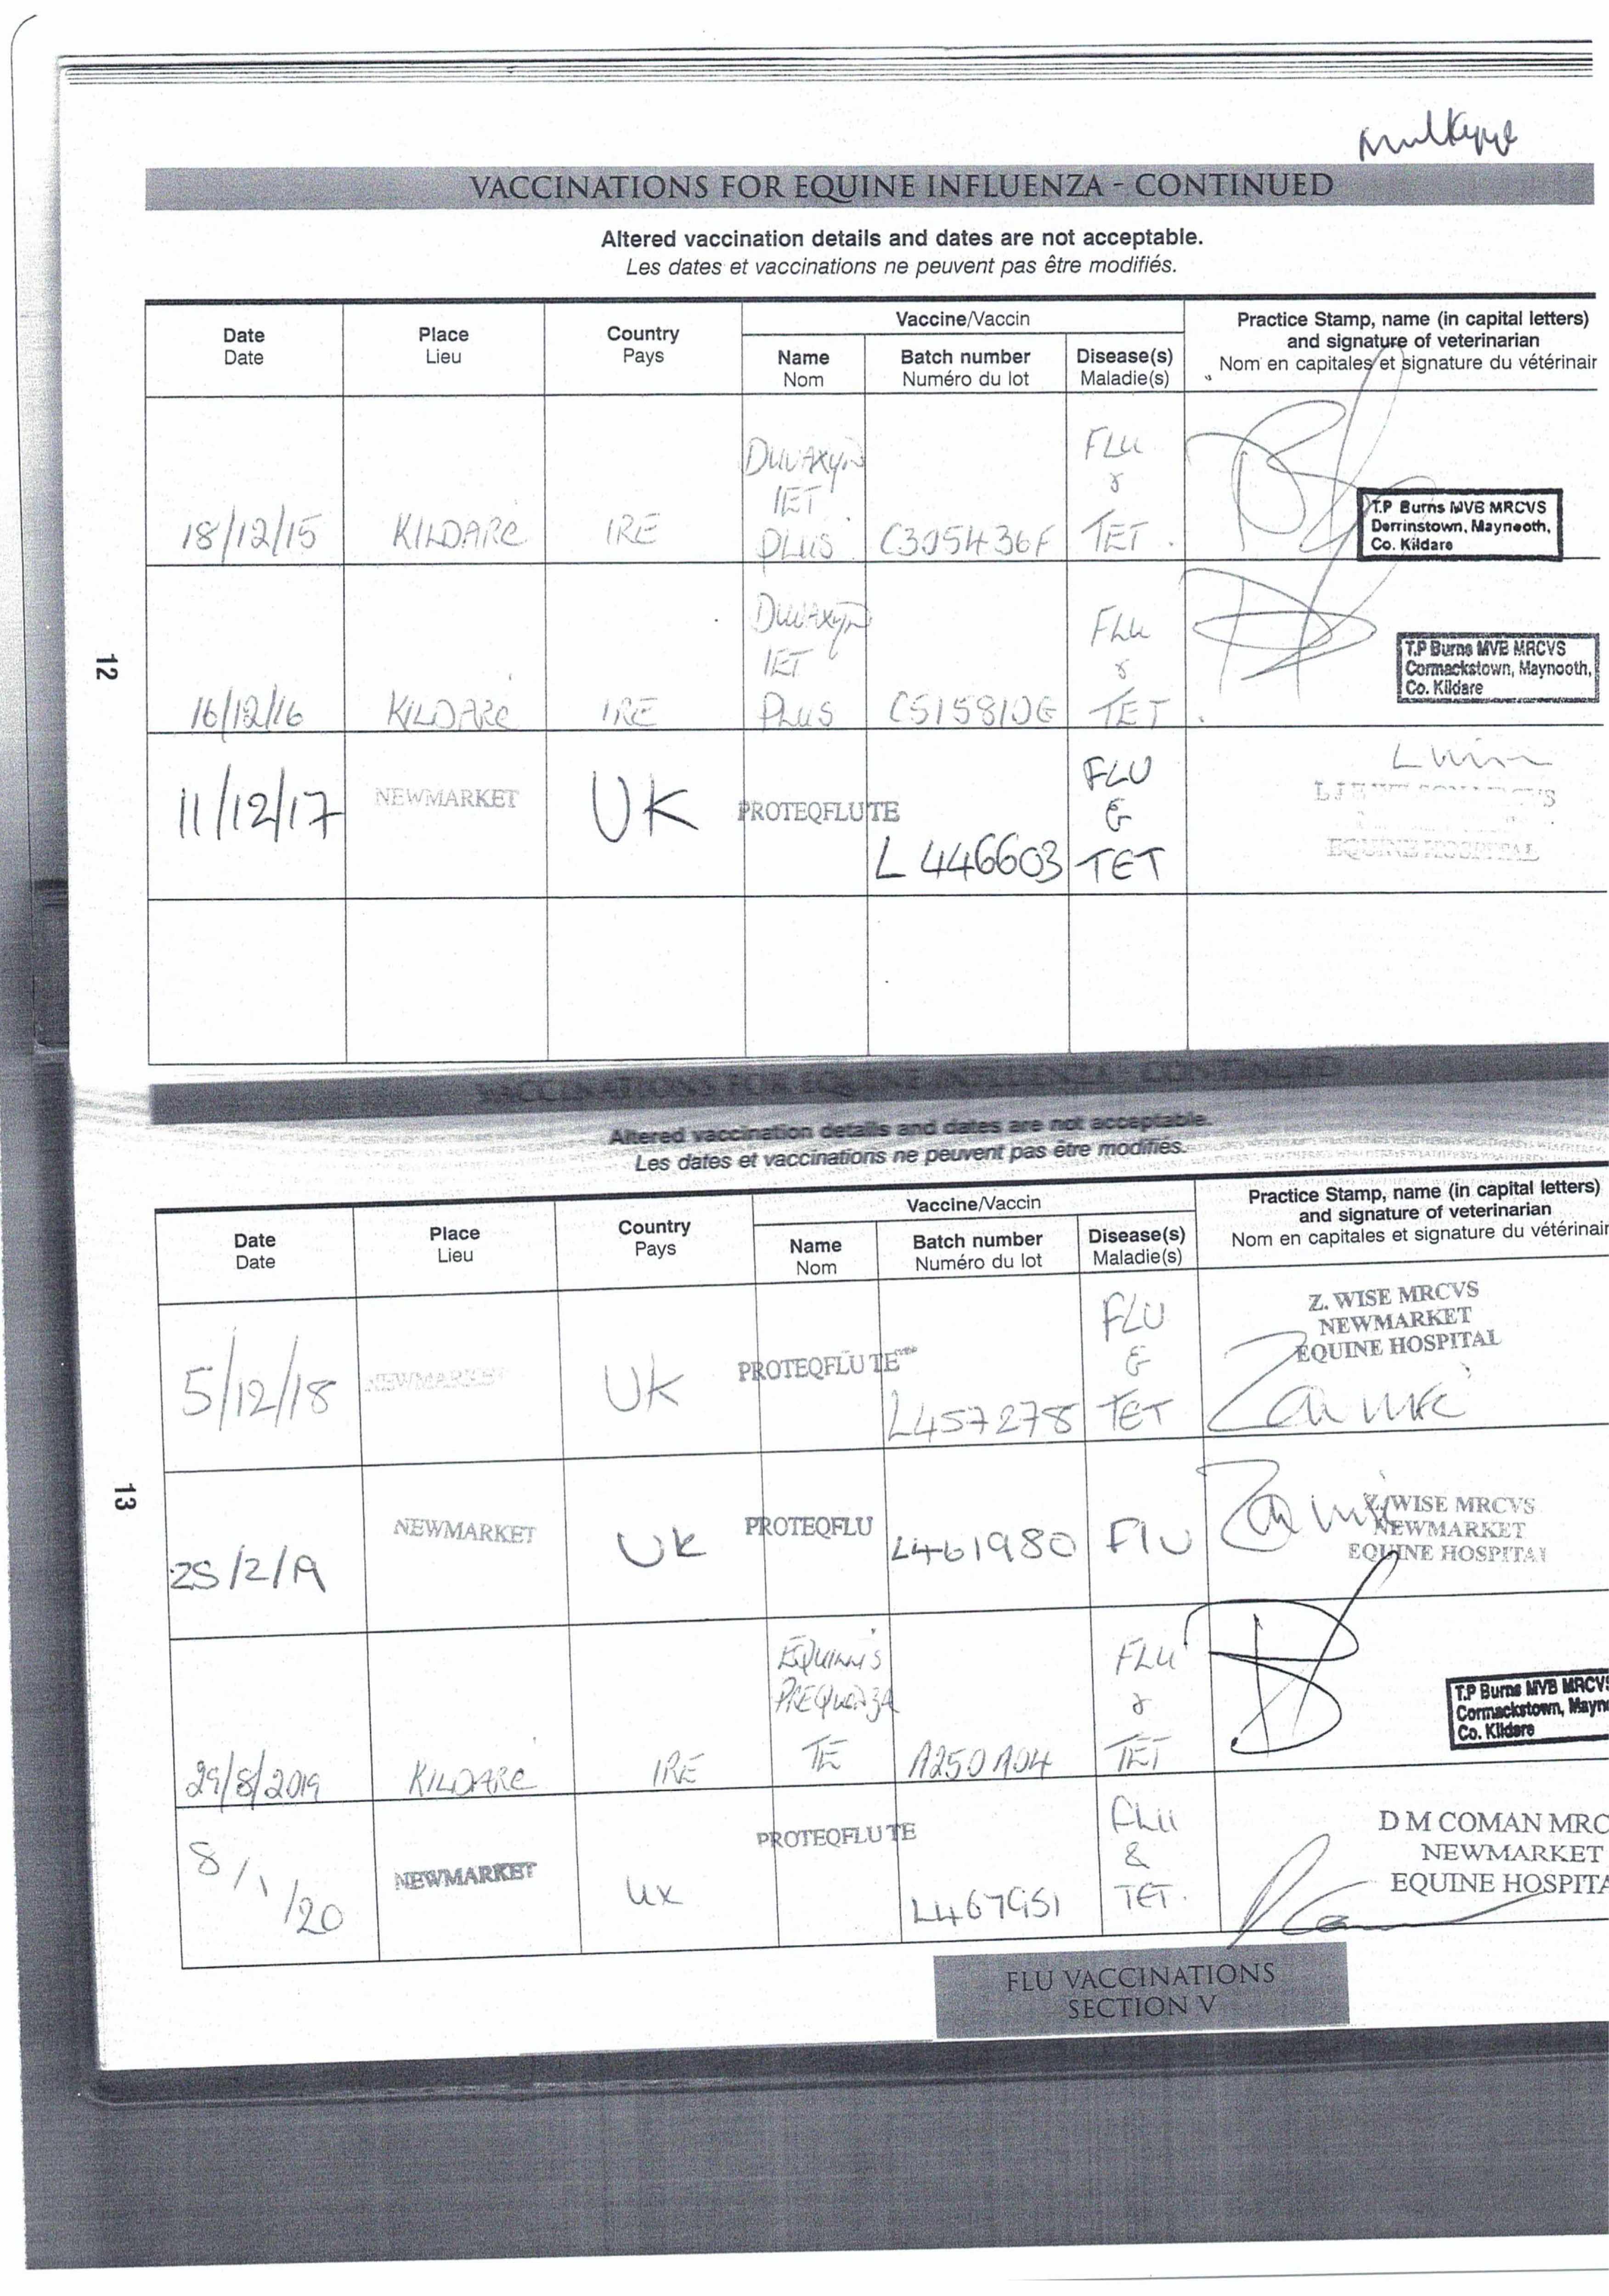 VACCINATIONS FOR EQUINE INFLUENZA - CONTINUED
Altered vaccination details and dates are not acceptable.
Les dates et vaccinations ne peuvent pas être modifiés.
Date Place Country Vaccine/Vaccin Practice Stamp, name (in capital letters)
Date Lieu Pays Name Batch number Disease(s) and signature of veterinarian
Nom Numéro du lot Maladie(s) Nom en capitales et signature du vétérinair
DUVAXYN FLU
IET &
18/12/15 KILDARE IRE PLUS C305436F TET.
T.P Burns MVB MRCVS
Derrinstown, Maynooth,
Co. Kildare
DUVAXYN FLU
IET &
16/12/16 KILDARE IRE PLUS TET
T.P Burns MVB MRCVS
Cormackstown, Maynooth,
Co. Kildare
12
11/12/17 NEWMARKET UK PROTEQFLU TE L 446603 FLU
&
TET
EQUINE HOSPITAL
VACCINATIONS FOR EQUINE INFLUENZA - CONTINUED
Altered vaccination details and dates are not acceptable.
Les dates et vaccinations ne peuvent pas être modifiés.
Date Place Country Vaccine/Vaccin Practice Stamp, name (in capital letters)
Date Lieu Pays Name Batch number Disease(s) and signature of veterinarian
Nom Numéro du lot Maladie(s) Nom en capitales et signature du vétérinair
5/12/18 NEWMARKET UK PROTEQFLU TE L457278 FLU
&
TET
Z. WISE MRCVS
NEWMARKET
EQUINE HOSPITAL
13
25/2/19 NEWMARKET UK PROTEQFLU L461980 FLU
Z. WISE MRCVS
NEWMARKET
EQUINE HOSPITAL
EQUINIS FLU
PREQUENZA &
29/8/2019 KILDARE IRE TE A250A04 TET
T.P Burns MVB MRCVS
Cormackstown, Mayn
Co. Kildare
8/1/20 NEWMARKET UK PROTEQFLU TE L467951 FLU
&
TET.
D M COMAN MRC
NEWMARKET
EQUINE HOSPITA
FLU VACCINATIONS
SECTION V